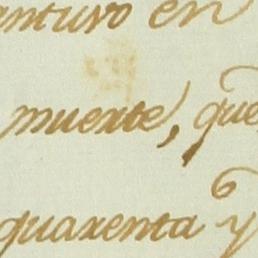 antuvo en
muerte, que
quarenta y